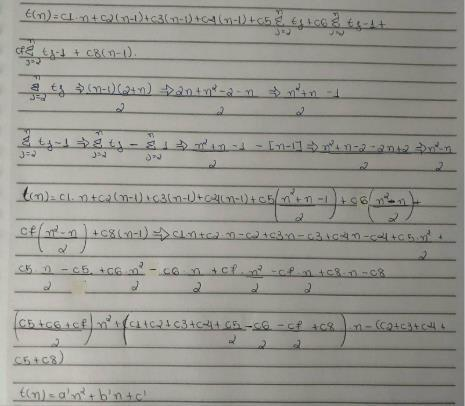 t(n)=c1·n+c2(n-1)+c3(n-1)+c4(n-1)+c5 n∑j=2 tj+c6 n∑j=2 tj-1+
cf n∑j=2 tj-1 + c8(n-1).
n∑j=2 tj ⇒ (n-1)(2+n)/2 ⇒ 2n+n²-2-n/2 ⇒ n²+n/2 -1
n∑j=2 tj-1 ⇒ n∑j=2 tj - n∑j=2 1 ⇒ n²+n/2 -1 -[n-1] ⇒ n²+n-2-2n+2/2 ⇒ n²-n/2
t(n)=c1·n+c2(n-1)+c3(n-1)+c4(n-1)+c5(n²+n-1/2)+c6(n²-n/2)+
cf(n²-n/2)+c8(n-1) ⇒ c1n+c2n-c2+c3n-c3+c4n-c4+c5·n²/2+
c5·n/2 -c5/2 +c6·n²/2 -c6·n/2 +cf·n²/2 -cf·n/2 +c8·n-c8
(c5+c6+cf/2)n²+(c1+c2+c3+c4+c5/2-c6/2-cf/2+c8)·n-(c2+c3+c4+
c5+c8)
t(n)=a'n²+b'n+c'